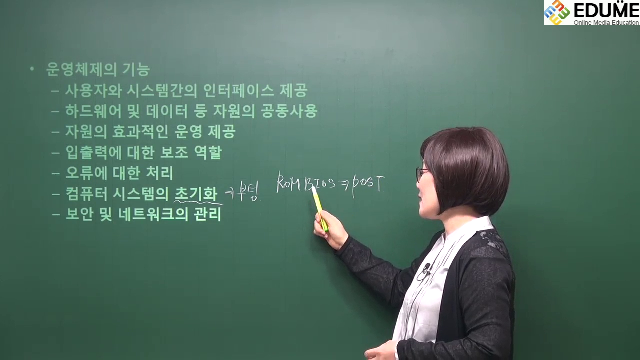 EDUME
Online Media Education
• 운영체제의 기능
– 사용자와 시스템간의 인터페이스 제공
– 하드웨어 및 데이터 등 자원의 공동사용
– 자원의 효과적인 운영 제공
– 입출력에 대한 보조 역할
– 오류에 대한 처리
– 컴퓨터 시스템의 초기화 → 부팅 ROM BIOS ⇒ POST
– 보안 및 네트워크의 관리